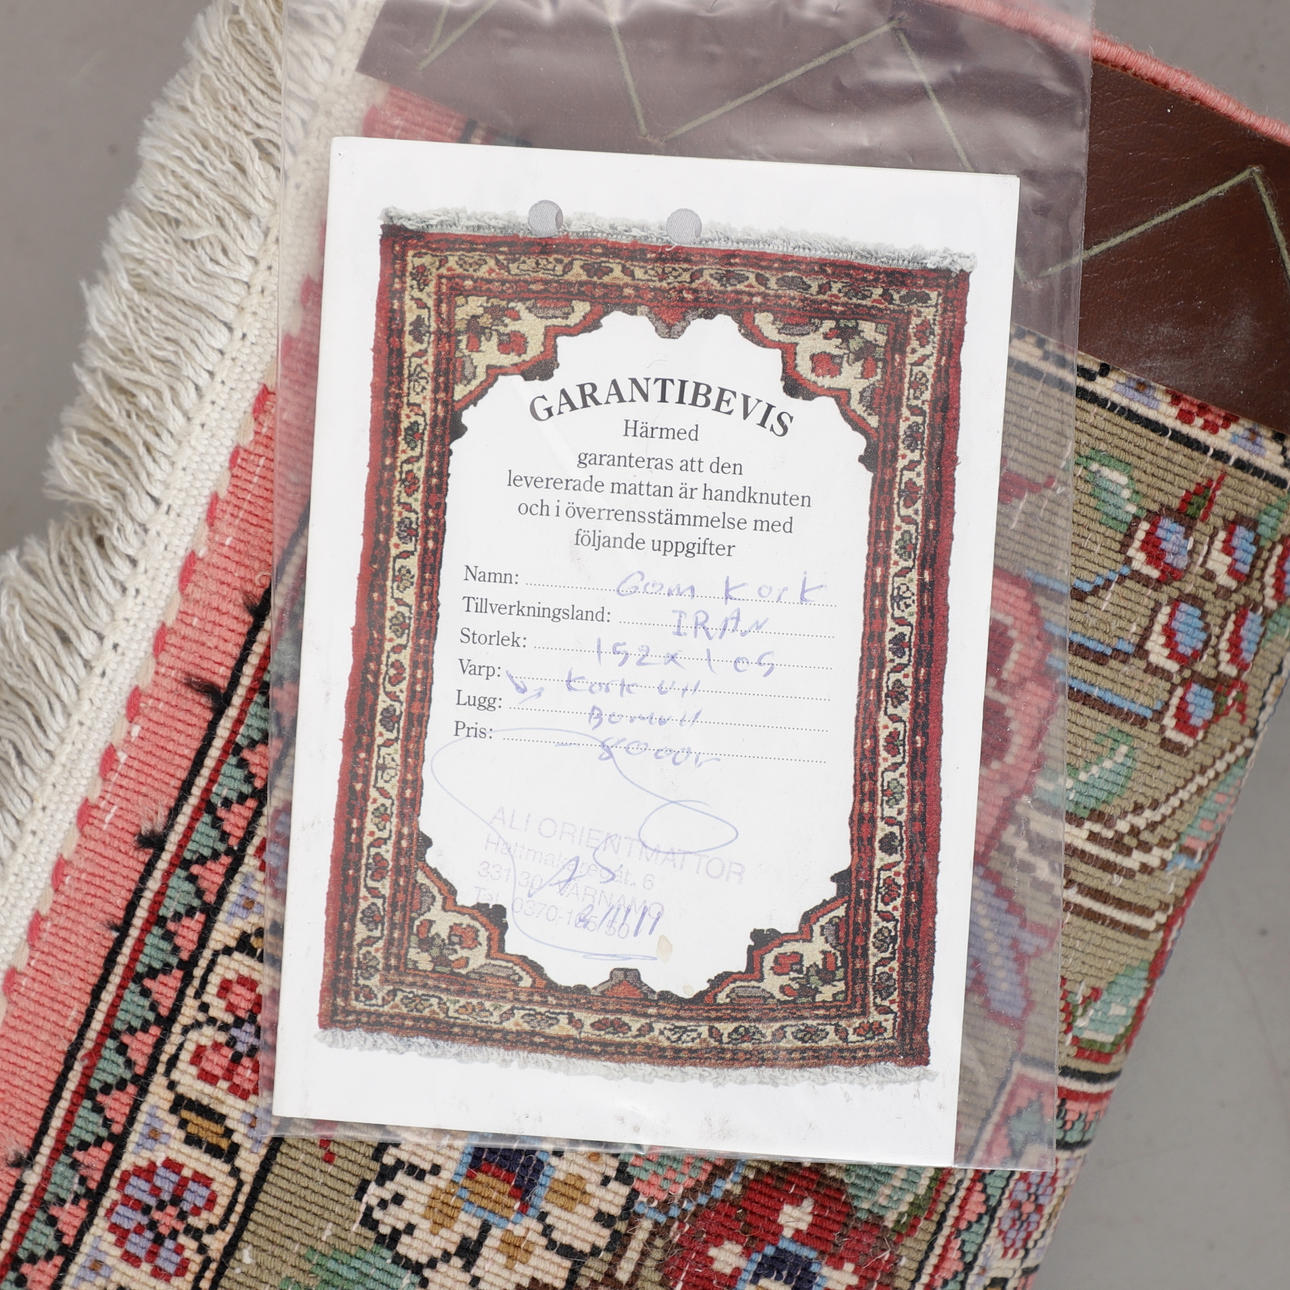 GARANTIBEVIS
Härmed
garanteras att den
levererade mattan är handknuten
och i överrensstämmelse med
följande uppgifter
Namn: Gom Kork
Tillverkningsland: IRAN
Storlek: 152 x 105
Varp: Kork ull
Lugg: Bomull
Pris: 8000:-
ALI ORIENTMATTOR
6
331 30 VÄRNAMO
Tel. 0370-